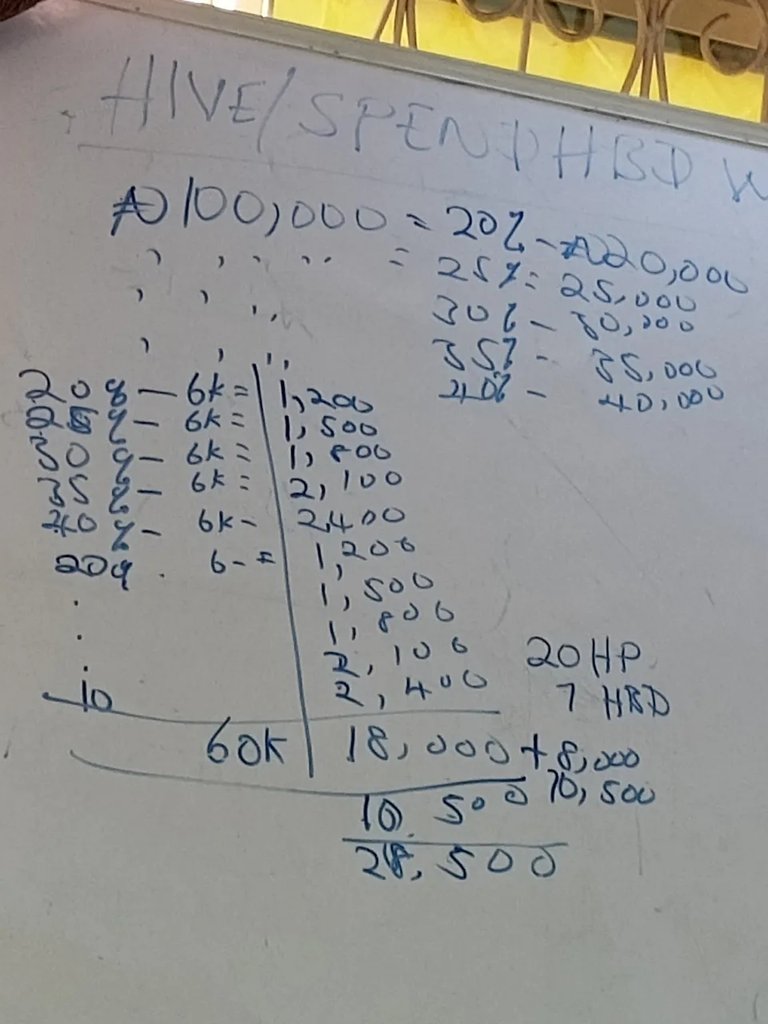 HIVE/SPENDHBD W
₦100,000 = 20% - ₦20,000
, , ,, ,, = 25% = 25,000
, , ,, 30% - 30,000
, , ,, 35% = 35,000
40% - 40,000
20% - 6k = 1,200
25% - 6k = 1,500
30% - 6k = 1,800
35% - 6k = 2,100
40% - 6k - 2,400
20% . 6 - = 1,200
. 1,500
. 1,800
. 2,100 20 HP
10 2,400 7 HBD
60k 18,000 + 8,000
10,500
10.500
28,500